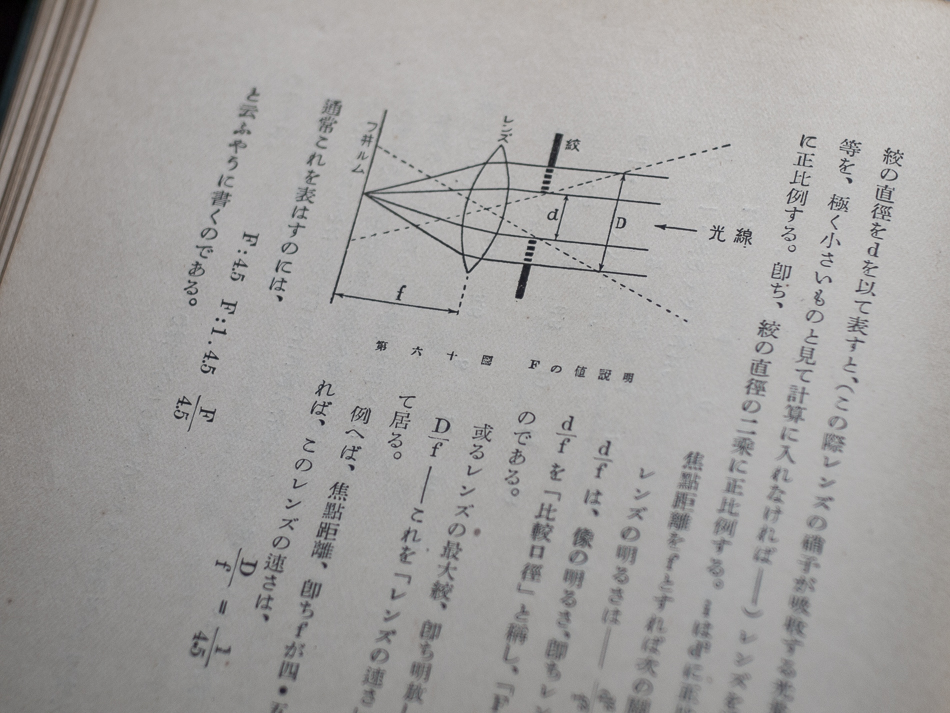 絞の直徑をdを以て表すと、(この際レンズの硝子が吸收する光
等を、極く小さいものと見て計算に入れなければ——)レンズを
に正比例する。卽ち、絞の直徑の二乘に正比例する。
焦點距離をfとすれば次の
レンズの明るさは——
d/f は、像の明るさ、卽ちレン
d/f を「比較口徑」と稱し、「F
のである。
或るレンズの最大絞、卽ち明放し
D/f ——これを「レンズの速さ
て居る。
例へば、焦點距離、卽ちfが四・五
れば、このレンズの速さは、
D/f = 1/4.5
光線
D
d
絞
レンズ
フヰルム
f
第六十圖 Fの値說明
通常これを表はすのには、
F:4.5 F:1.4.5 F/4.5
と云ふやうに書くのである。